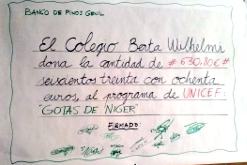 BANCO DE PINOS GENIL
El Colegio Berta Wilhelmi
dona la cantidad de #630,80€#
seiscientos treinta con ochenta
euros, al programa de UNICEF:
"GOTAS DE NIGER"
FIRMADO